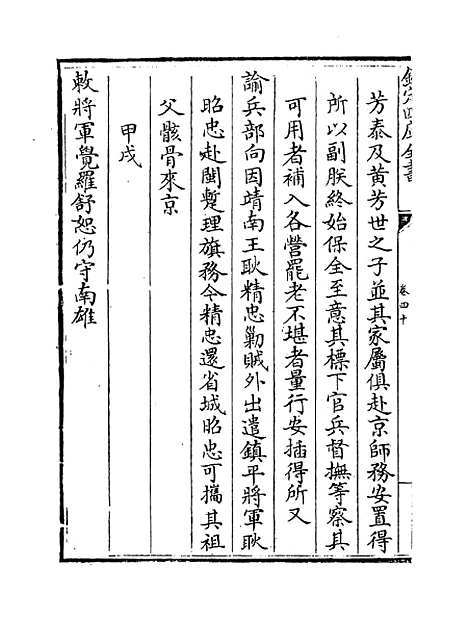 欽定四庫全書
卷四十
芳泰及黃芳世之子並其家屬俱赴京師務安置得
所以副朕終始保全至意其標下官兵督撫等察其
可用者補入各營罷老不堪者量行安插得所又
諭兵部向因靖南王耿精忠勦賊外出遣鎮平將軍耿
昭忠赴閩蹔理旗務今精忠還省城昭忠可攜其祖
父骸骨來京
甲戌
敕將軍覺羅舒恕仍守南雄